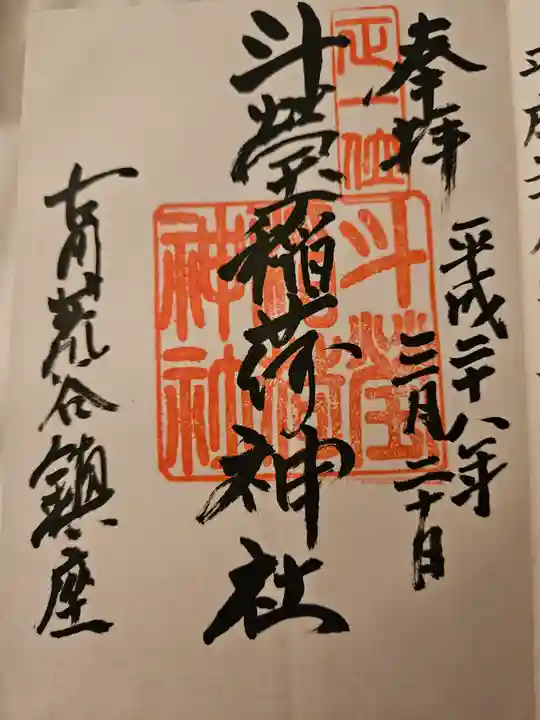 奉拝
正一位
平成二十八年
三月二十日
斗瑩稲荷神社
斗瑩
稲荷
神社
古川荒谷鎮座